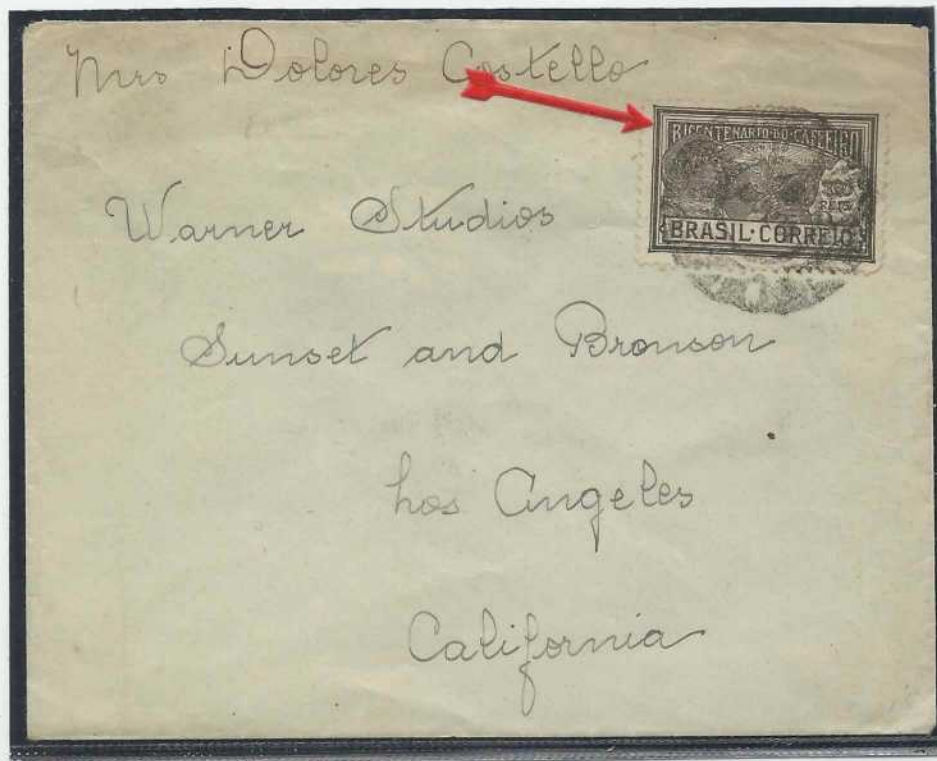 Mrs Dolores Costello
BICENTENARIO·DO·CAFEEIRO
REIS
BRASIL·CORREIO
Warner Studios
Sunset and Bronson
Los Angeles
California